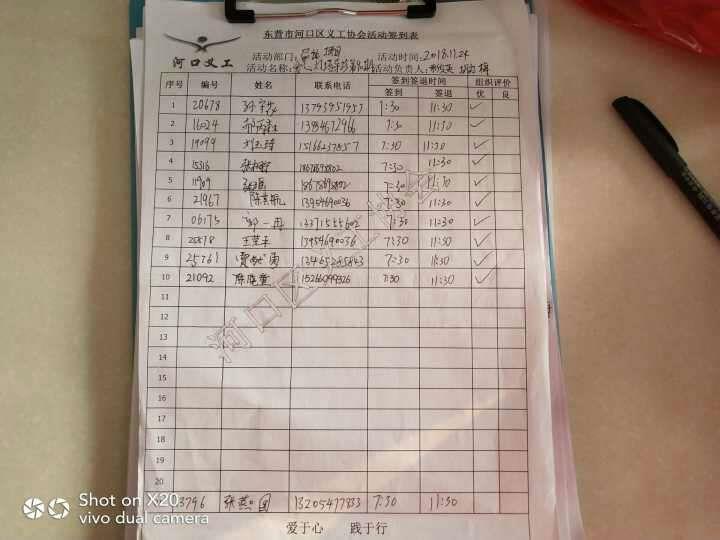 东营市河口区义工协会活动签到表
河口义工
活动部门: 项目 活动时间: 2018.11.24
活动名称: 活动负责人:
序号 编号 姓名 联系电话 签到签退时间 组织评价
签到 签退 优 良
1 20678 13793951957 7:30 11:30 ✓
2 16024 13954672966 7:30 11:30 ✓
3 19099 刘玉琦 15166237857 7:30 11:30 ✓
4 15316 18678693802 7:30 11:30 ✓
5 11989 18678693802 7:30 11:30 ✓
6 21967 陈景航 13954690036 7:30 11:30 ✓
7 06175 郭一冉 13371555602 7:30 11:30 ✓
8 25878 王苹 13954690036 7:30 11:30 ✓
9 25761 贾 勇 13465285843 7:30 11:30 ✓
10 21092 陈晓萱 15266099326 7:30 11:30 ✓
11
12
13
14
15
16
17
18
19
20
3796 张燕团 13205477833 7:30 11:30
爱于心 践于行
河口区义工协会
Shot on X20
vivo dual camera